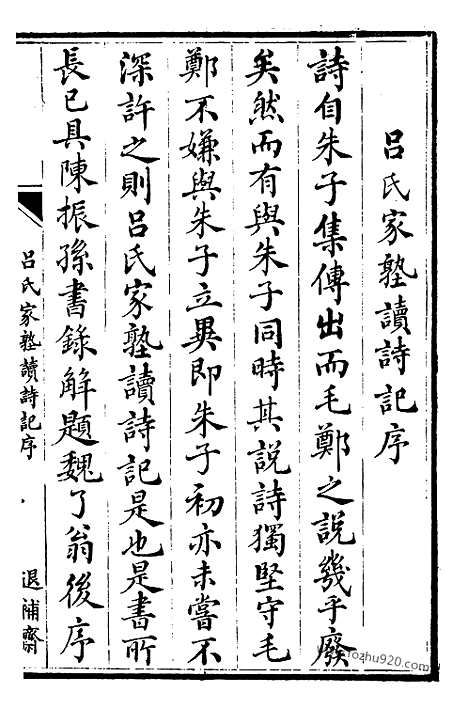 呂氏家塾讀詩記序
詩自朱子集傳出而毛鄭之說幾乎廢
矣然而有與朱子同時其說詩獨堅守毛
鄭不嫌與朱子立異即朱子初亦未嘗不
深許之則呂氏家塾讀詩記是也是書所
長已具陳振孫書錄解題魏了翁後序
呂氏家塾讀詩記序
退補齋